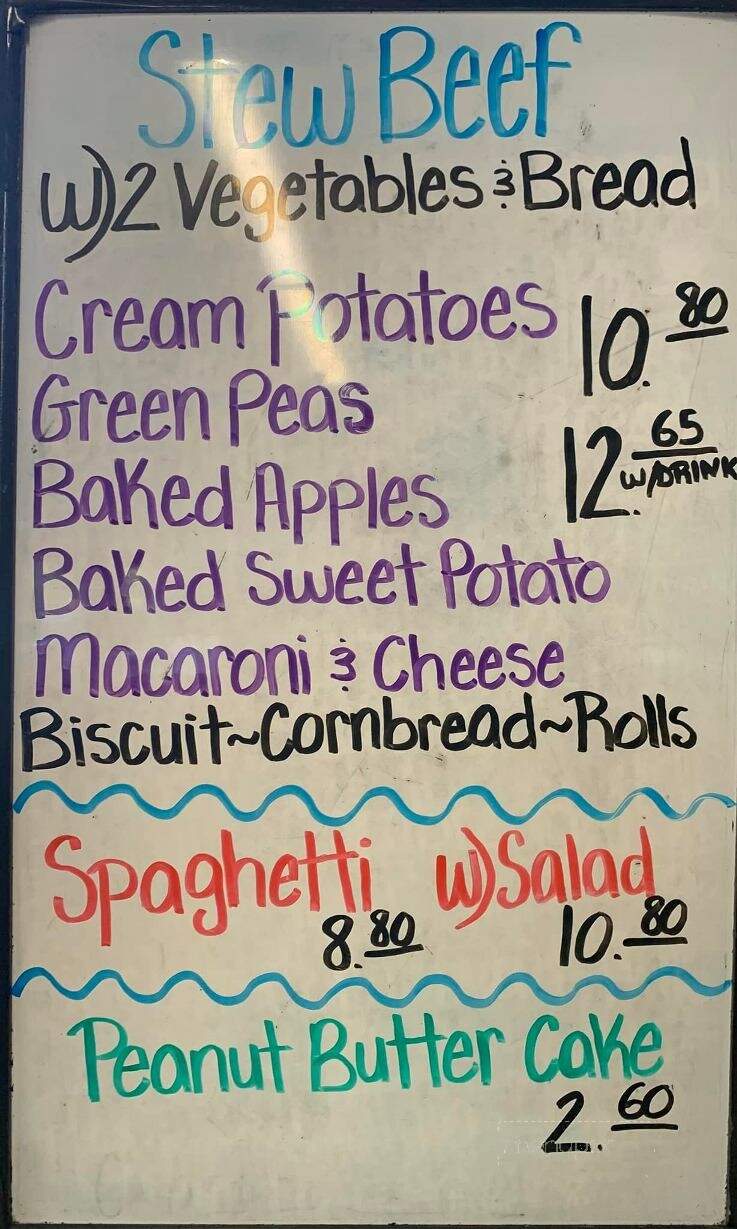 Stew Beef
w/2 Vegetables & Bread
Cream Potatoes 10.80
Green Peas
12.65
w/DRINK
Baked Apples
Baked Sweet Potato
Macaroni & Cheese
Biscuit~Cornbread~Rolls
Spaghetti w/Salad
8.80 10.80
Peanut Butter Cake
2.60